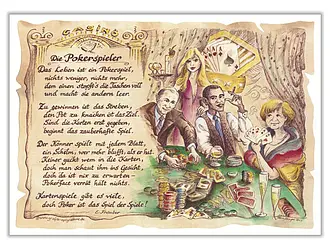 CASINO
Die Pokerspieler
Das Leben ist ein Pokerspiel,
nichts weniger, nichts mehr,
dem einen stopft's die Taschen voll
und macht sie andern leer.
Zu gewinnen ist das Streben,
den Pot zu knacken ist das Ziel.
Sind die Karten erst gegeben,
beginnt das zauberhafte Spiel.
Der Könner spielt mit jedem Blatt,
ein Schelm, wer mehr blufft, als er hat.
Keiner guckt wem in die Karten,
doch man schaut ihm ins Gesicht,
doch da ist nix zu erwarten -
Pokerface verrät halt nichts.
Kartenspiele gibt es viele,
doch Poker ist das Spiel der Spiele!